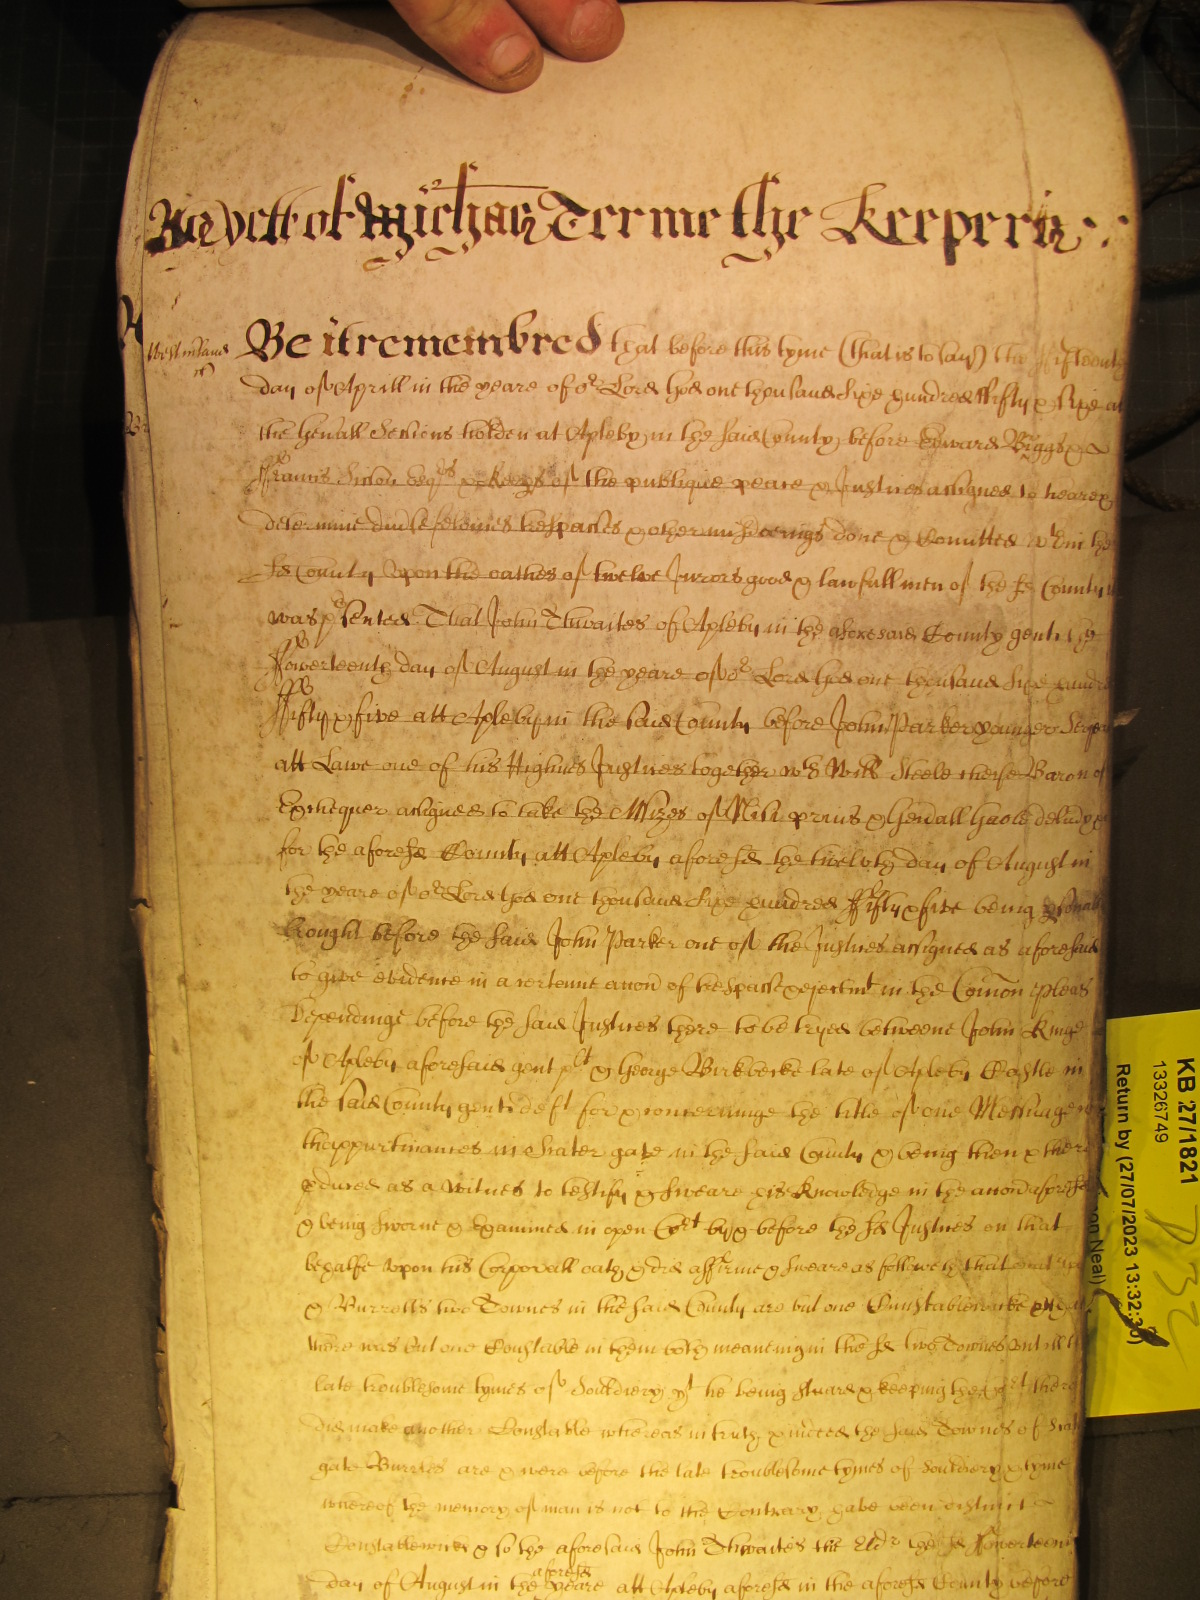 yett of Michas Terme the Keepers
Westmland
Be it remembred that before this tyme (that is to say) the fifteenth
day of Aprill in the yeare of or Lord god one thousand Sixe hundred ffifty & sixe at
the genall Sessions holden at Apleby in the said County before Edward Briggs &
ffrancis Sisson Esqrs & Keeps of the publique peace & Justices assigned to heare &
determine divse felonies trespasses & other misdeeings done & Comitted wthin the
sd County Upon the oathes of twelve Jurors good & lawfull men of the sd County
was psented That John Thwaites of Apleby in the aforesaid County gent the
ffowerteenth day of August in the yeare of or Lord god one thousand Sixe hundred
ffifty & five att Apleby in the said County before John Parker younger Serjeant
att Lawe one of his Highnes Justices together wth Willm Steele cheife Baron of
Exchequer assigned to take the Assizes of Nisi prius & genall Gaole delivy
for the aforesd County att Apleby aforesd the twelvth day of August in
the yeare of or Lord god one thousand Sixe hundred ffifty & five being psonally
brought before the said John Parker one of the Justices assigned as aforesaid
to give evidence in a certeine accon of trespasse & ejectmt in the Comon pleas
Dependinge before the said Justices there to be tryed betweene John Kinge
of Apleby aforesaid gent plt & George Birkbecke late of Apleby Castle in
the said County gent deft for & concerninge the title of one Messuage wth
thappurtinances in Scatergate in the said County & being then & there
pduced as a Witnes to testify & sweare his knowledge in the accon aforesd
& being sworne & Examined in open Cort by & before the sd Justices on that
behalfe upon his Corporall oath & did affirme & sweare as followeth that
& Burrells two Townes in the said County are but one Cunstablewicke & that
there was but one Constable in them both meaneing in the sd two Townes untill the
late troublesome tymes of Souldiery yt he being steward & keeping the Cort there
did make another Constable whereas in truth & indeed the said Townes of Scater
gate Burrells are & were before the late troublesome tymes of Souldiery & tyme
whereof the memory of man is not to the Contrary have been distinct
Constablewicks & so the aforesaid John Thwaites the Eldr the sd ffowerteenth
day of August in the aforesd yeare att Apleby aforesd in the aforesd County before
KB 27/1821
13326749
Return by (27/07/2023 13:32:36)
Neal)